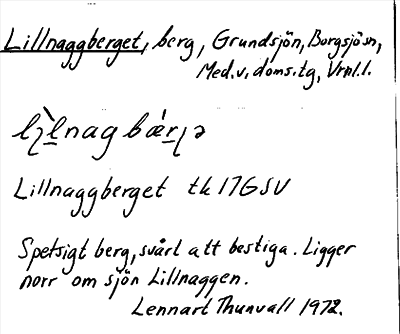 Lillnaggberget, berg, Grundsjön, Borgsjösn,
Med.v. doms.tg, Vrnl.l.
Lillnaggberget tk 17GSV
Spetsigt berg, svårt att bestiga. Ligger
norr om sjön Lillnaggen.
Lennart Thunvall 1972.